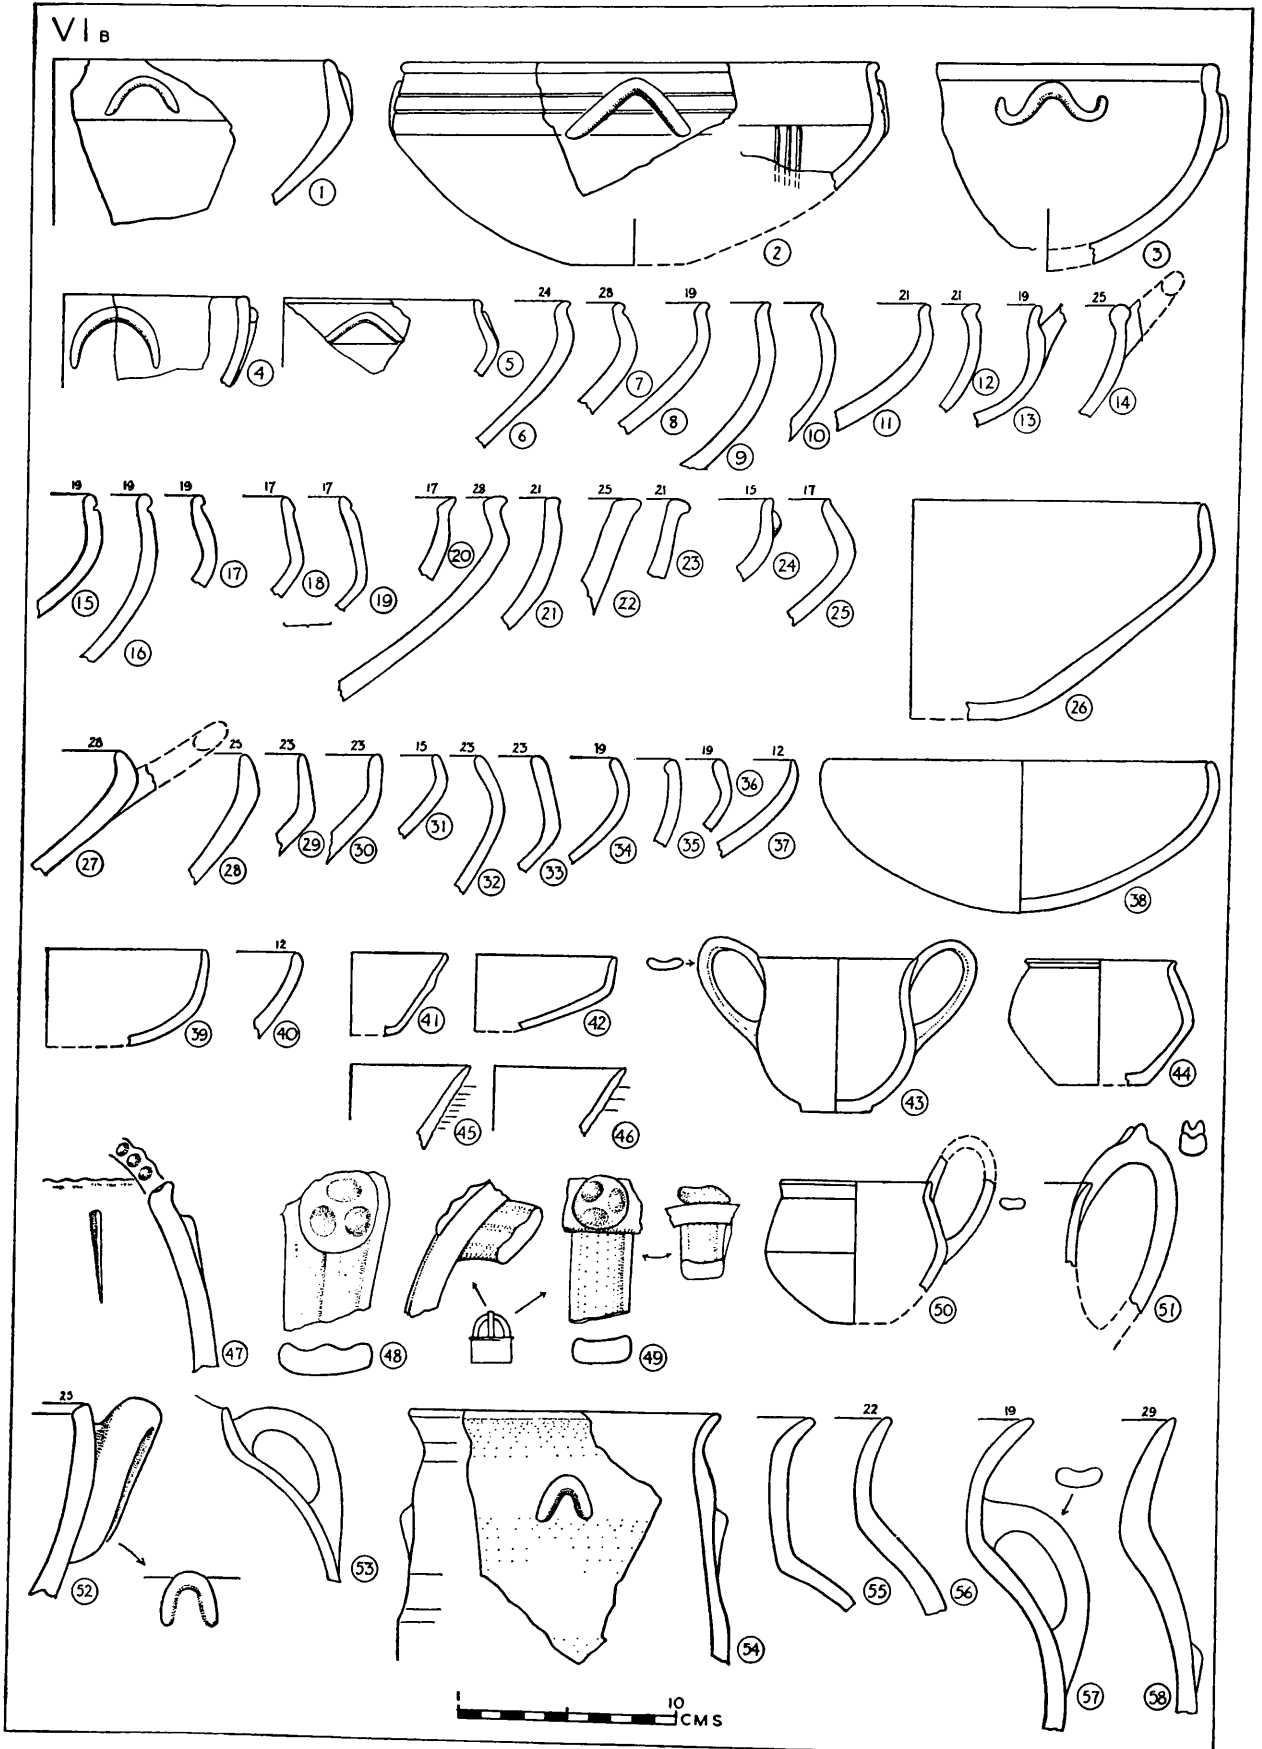 VI B
1 2 3
24 28 19 21 21 19 25
4 5 6 7 8 9 10 11 12 13 14
19 19 19 17 17 17 28 21 25 21 15 17
15 16 17 18 19 20 21 22 23 24 25 26
28 25 23 23 15 23 23 19 19 12
27 28 29 30 31 32 33 34 35 36 37 38
12
39 40 41 42 43 44
45 46
47 48 49 50 51
25 22 19 29
52 53 54 55 56 57 58
10
CMS